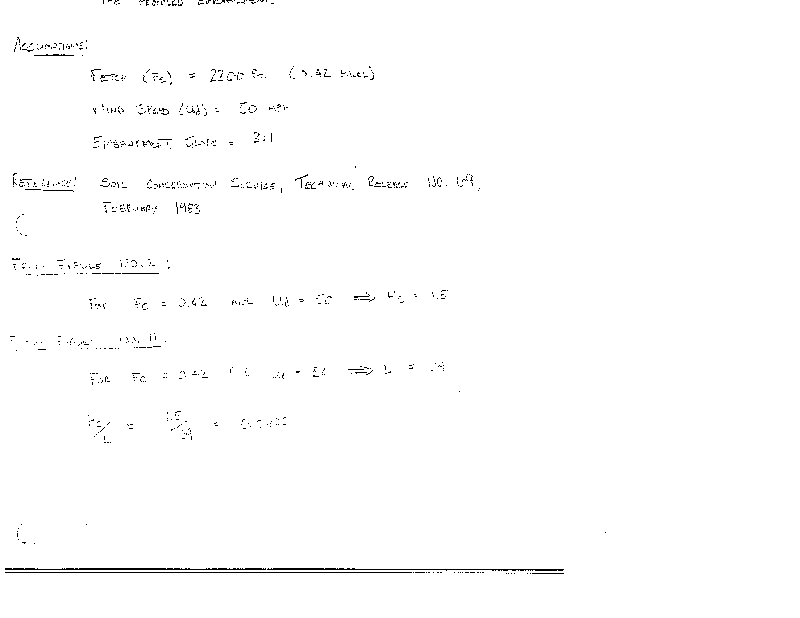 THE PROPOSED EMBANKMENT.
ASSUMPTIONS:
FETCH (Fe) = 2200 FT. (0.42 MILES)
WIND SPEED (Ud) = 50 MPH
EMBANKMENT SLOPE = 3:1
REFERENCE: SOIL CONSERVATION SERVICE, TECHNICAL RELEASE NO. 69,
FEBRUARY 1983
FROM FIGURE NO. 2:
FOR Fe = 0.42 AND Ud = 50 ⟹ Hs = 1.5
FROM FIGURE NO.
FOR Fe = 0.42 Ud = 50 ⟹ L =
Hs/L = =